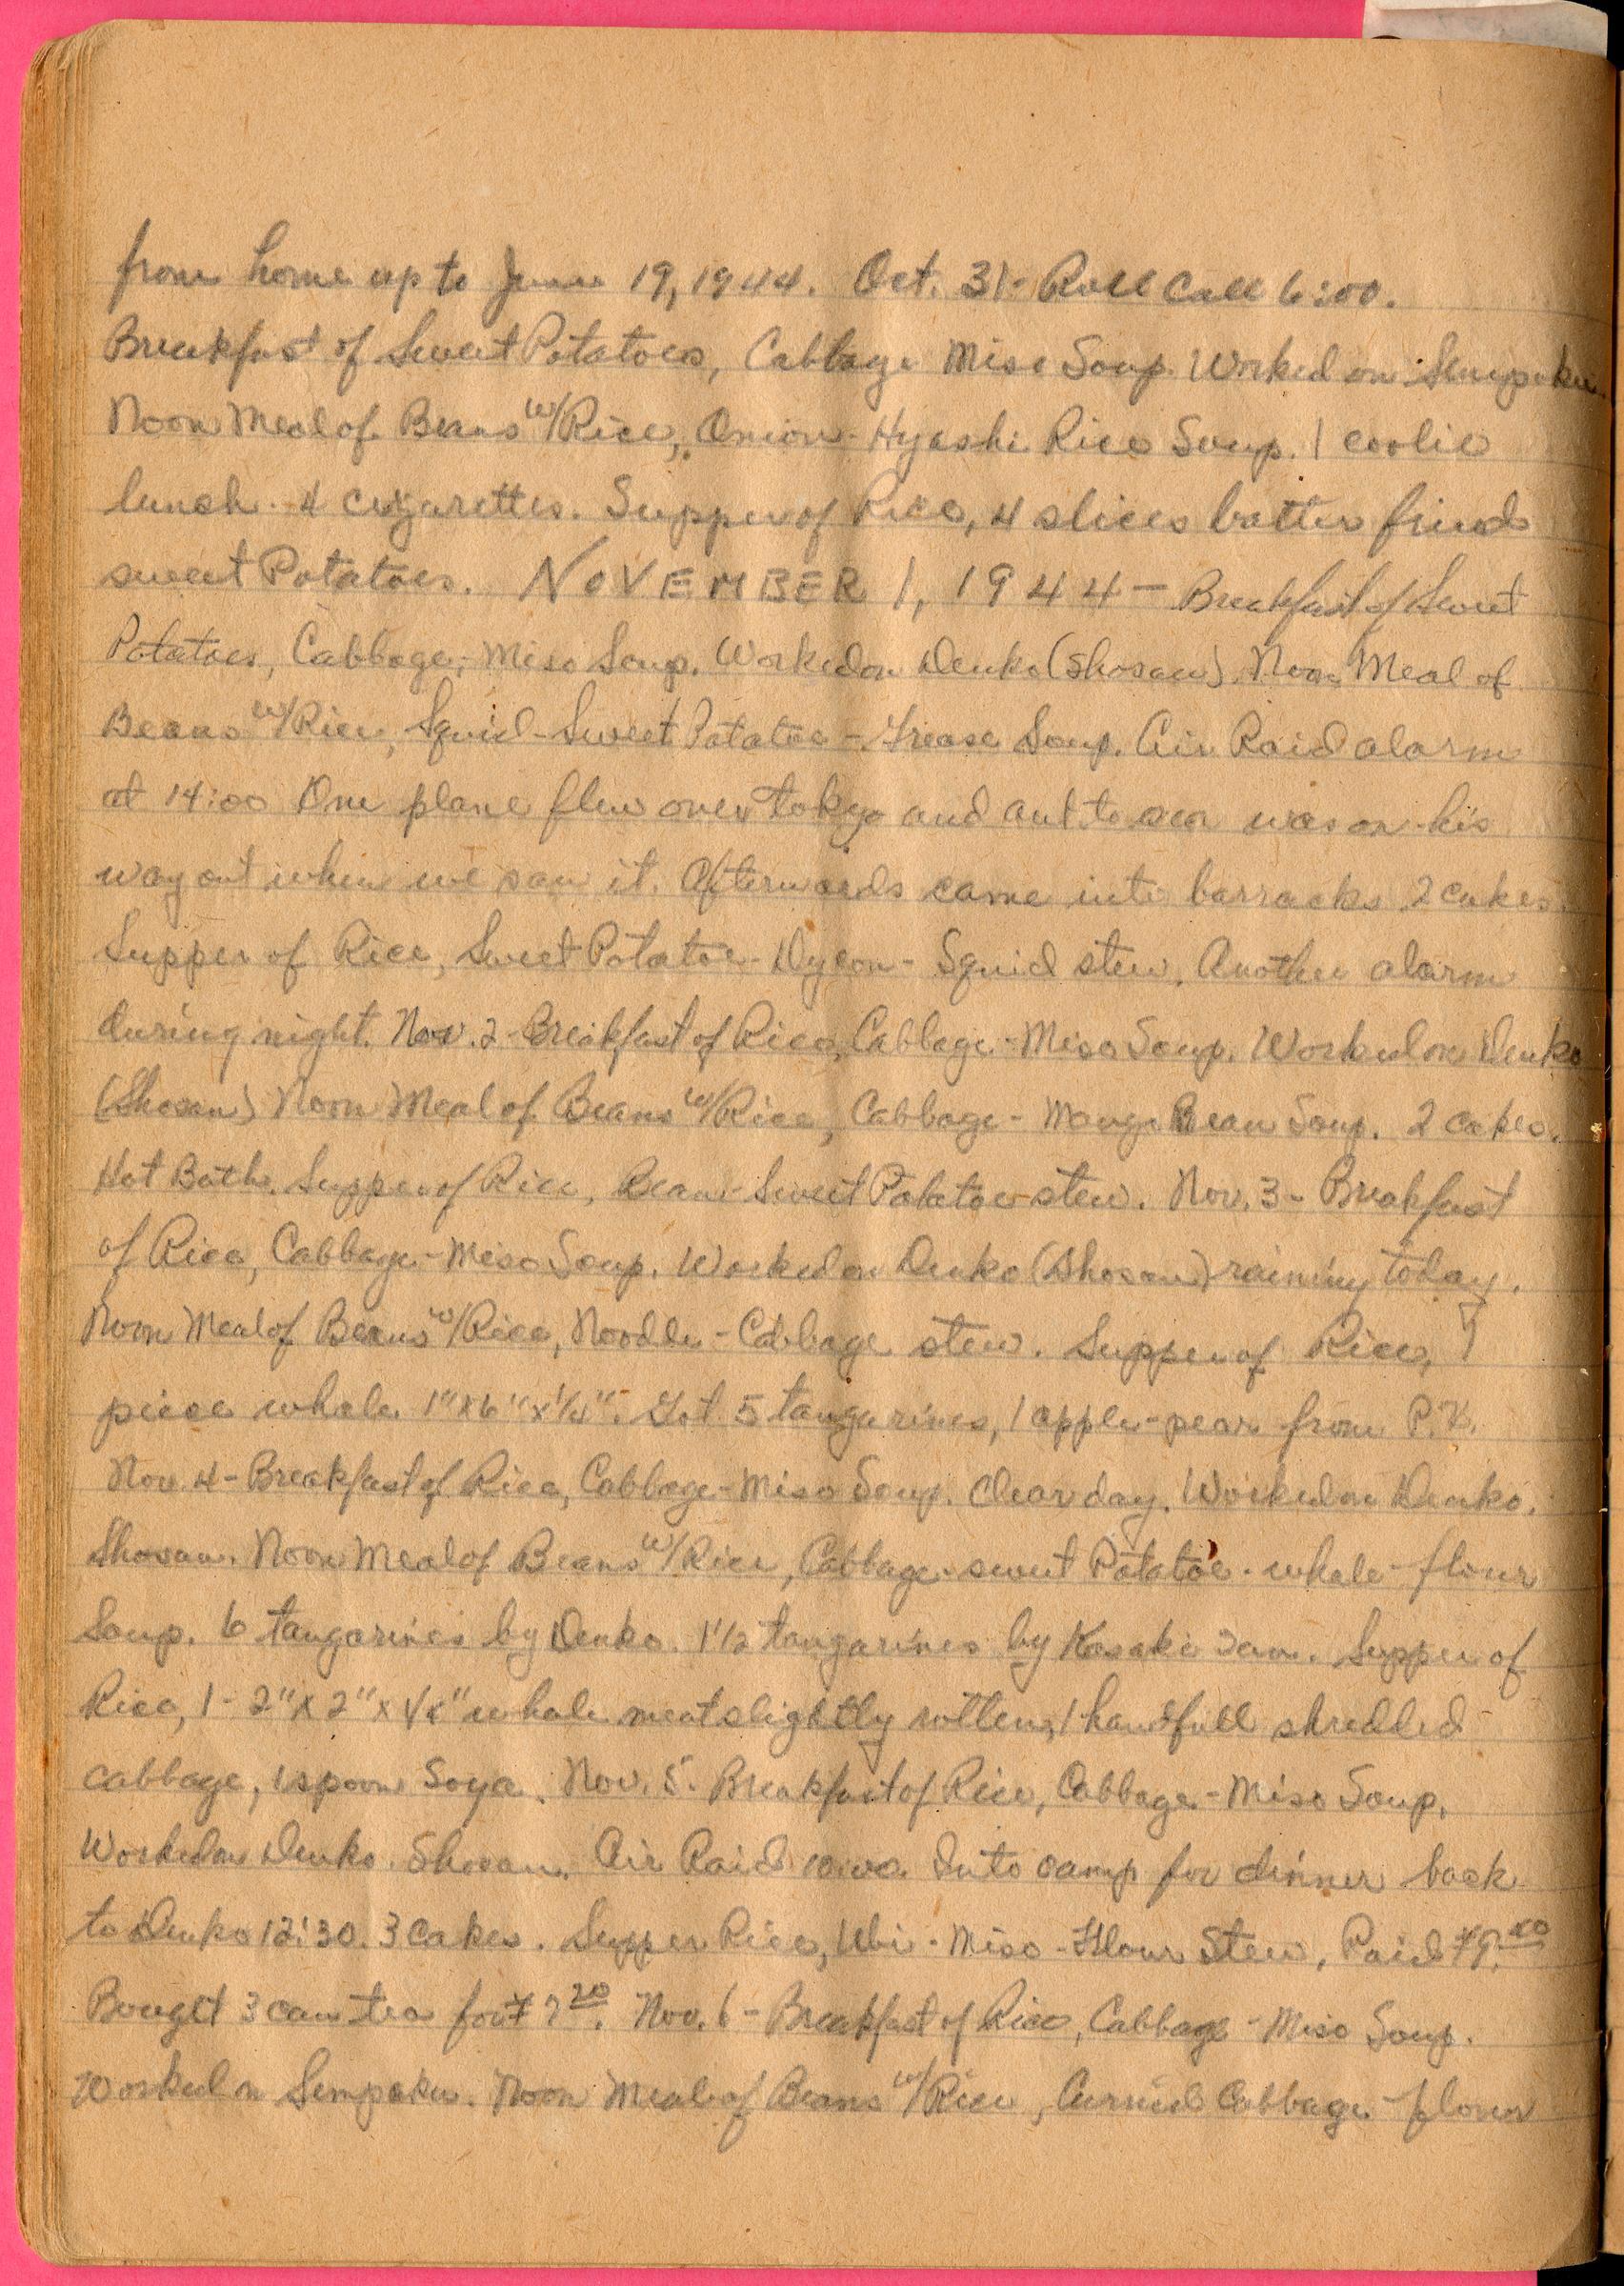 from home up to June 19, 1944. Oct. 31- Roll Call 6:00.
Breakfast of Sweet Potatoes, Cabbage Miso Soup. Worked on Senpaku.
Noon Meal of Beans w/Rice, Onion-Hyashi Rice Soup. 1 coolie
lunch. 4 cigarettes. Supper of Rice, 4 slices batter fried
sweet Potatoes. NOVEMBER 1, 1944- Breakfast of Sweet
Potatoes, Cabbage-Miso Soup. Worked on Denko (Shosan). Noon Meal of
Beans w/Rice, Squid-Sweet Potatoe-Grease Soup. Air Raid alarm
at 14:00 One plane flew over Tokyo and out to sea was on his
way out when we saw it. Afterwards came into barracks. 2 cakes.
Supper of Rice, Sweet Potatoe-Dycon-Squid stew. Another alarm
during night. Nov. 2-Breakfast of Rice, Cabbage-Miso Soup. Worked on Denko
(Shosan) Noon Meal of Beans w/Rice, Cabbage-Mongo Bean Soup. 2 cakes.
Hot Bath. Supper of Rice, Bean-Sweet Potatoe-stew. Nov. 3- Breakfast
of Rice, Cabbage-Miso Soup. Worked on Denko (Shosan) raining today.
Noon Meal of Beans w/Rice, Noodle-Cabbage stew. Supper of Rice, 1
piece whale 1"x6"x1/4". Got 5 tangerines, 1 apple-pear from P.X.
Nov. 4-Breakfast of Rice, Cabbage-Miso Soup. Clear day. Worked on Denko.
Shosan. Noon Meal of Beans w/Rice, Cabbage-sweet Potatoe-whale-flour
Soup. 6 tangarines by Denko. 1 1/2 tangarines by Kasaki San. Supper of
Rice, 1- 2"x2"x 1/8" whale meat slightly rotten, 1 handfull shredded
cabbage, 1 spoon Soya. Nov. 5- Breakfast of Rice, Cabbage-Miso Soup.
Worked on Denko. Shosan. Air Raid 10:00. Into camp for dinner back
to Denko 12:30. 3 cakes. Supper Rice, Ubi-Miso-Flour Stew. Paid
Bought 3 can tea for ¥ 20. Nov. 6-Breakfast of Rice, Cabbage-Miso Soup.
Worked on Senpaku. Noon Meal of Beans w/Rice, Curried Cabbage-flour